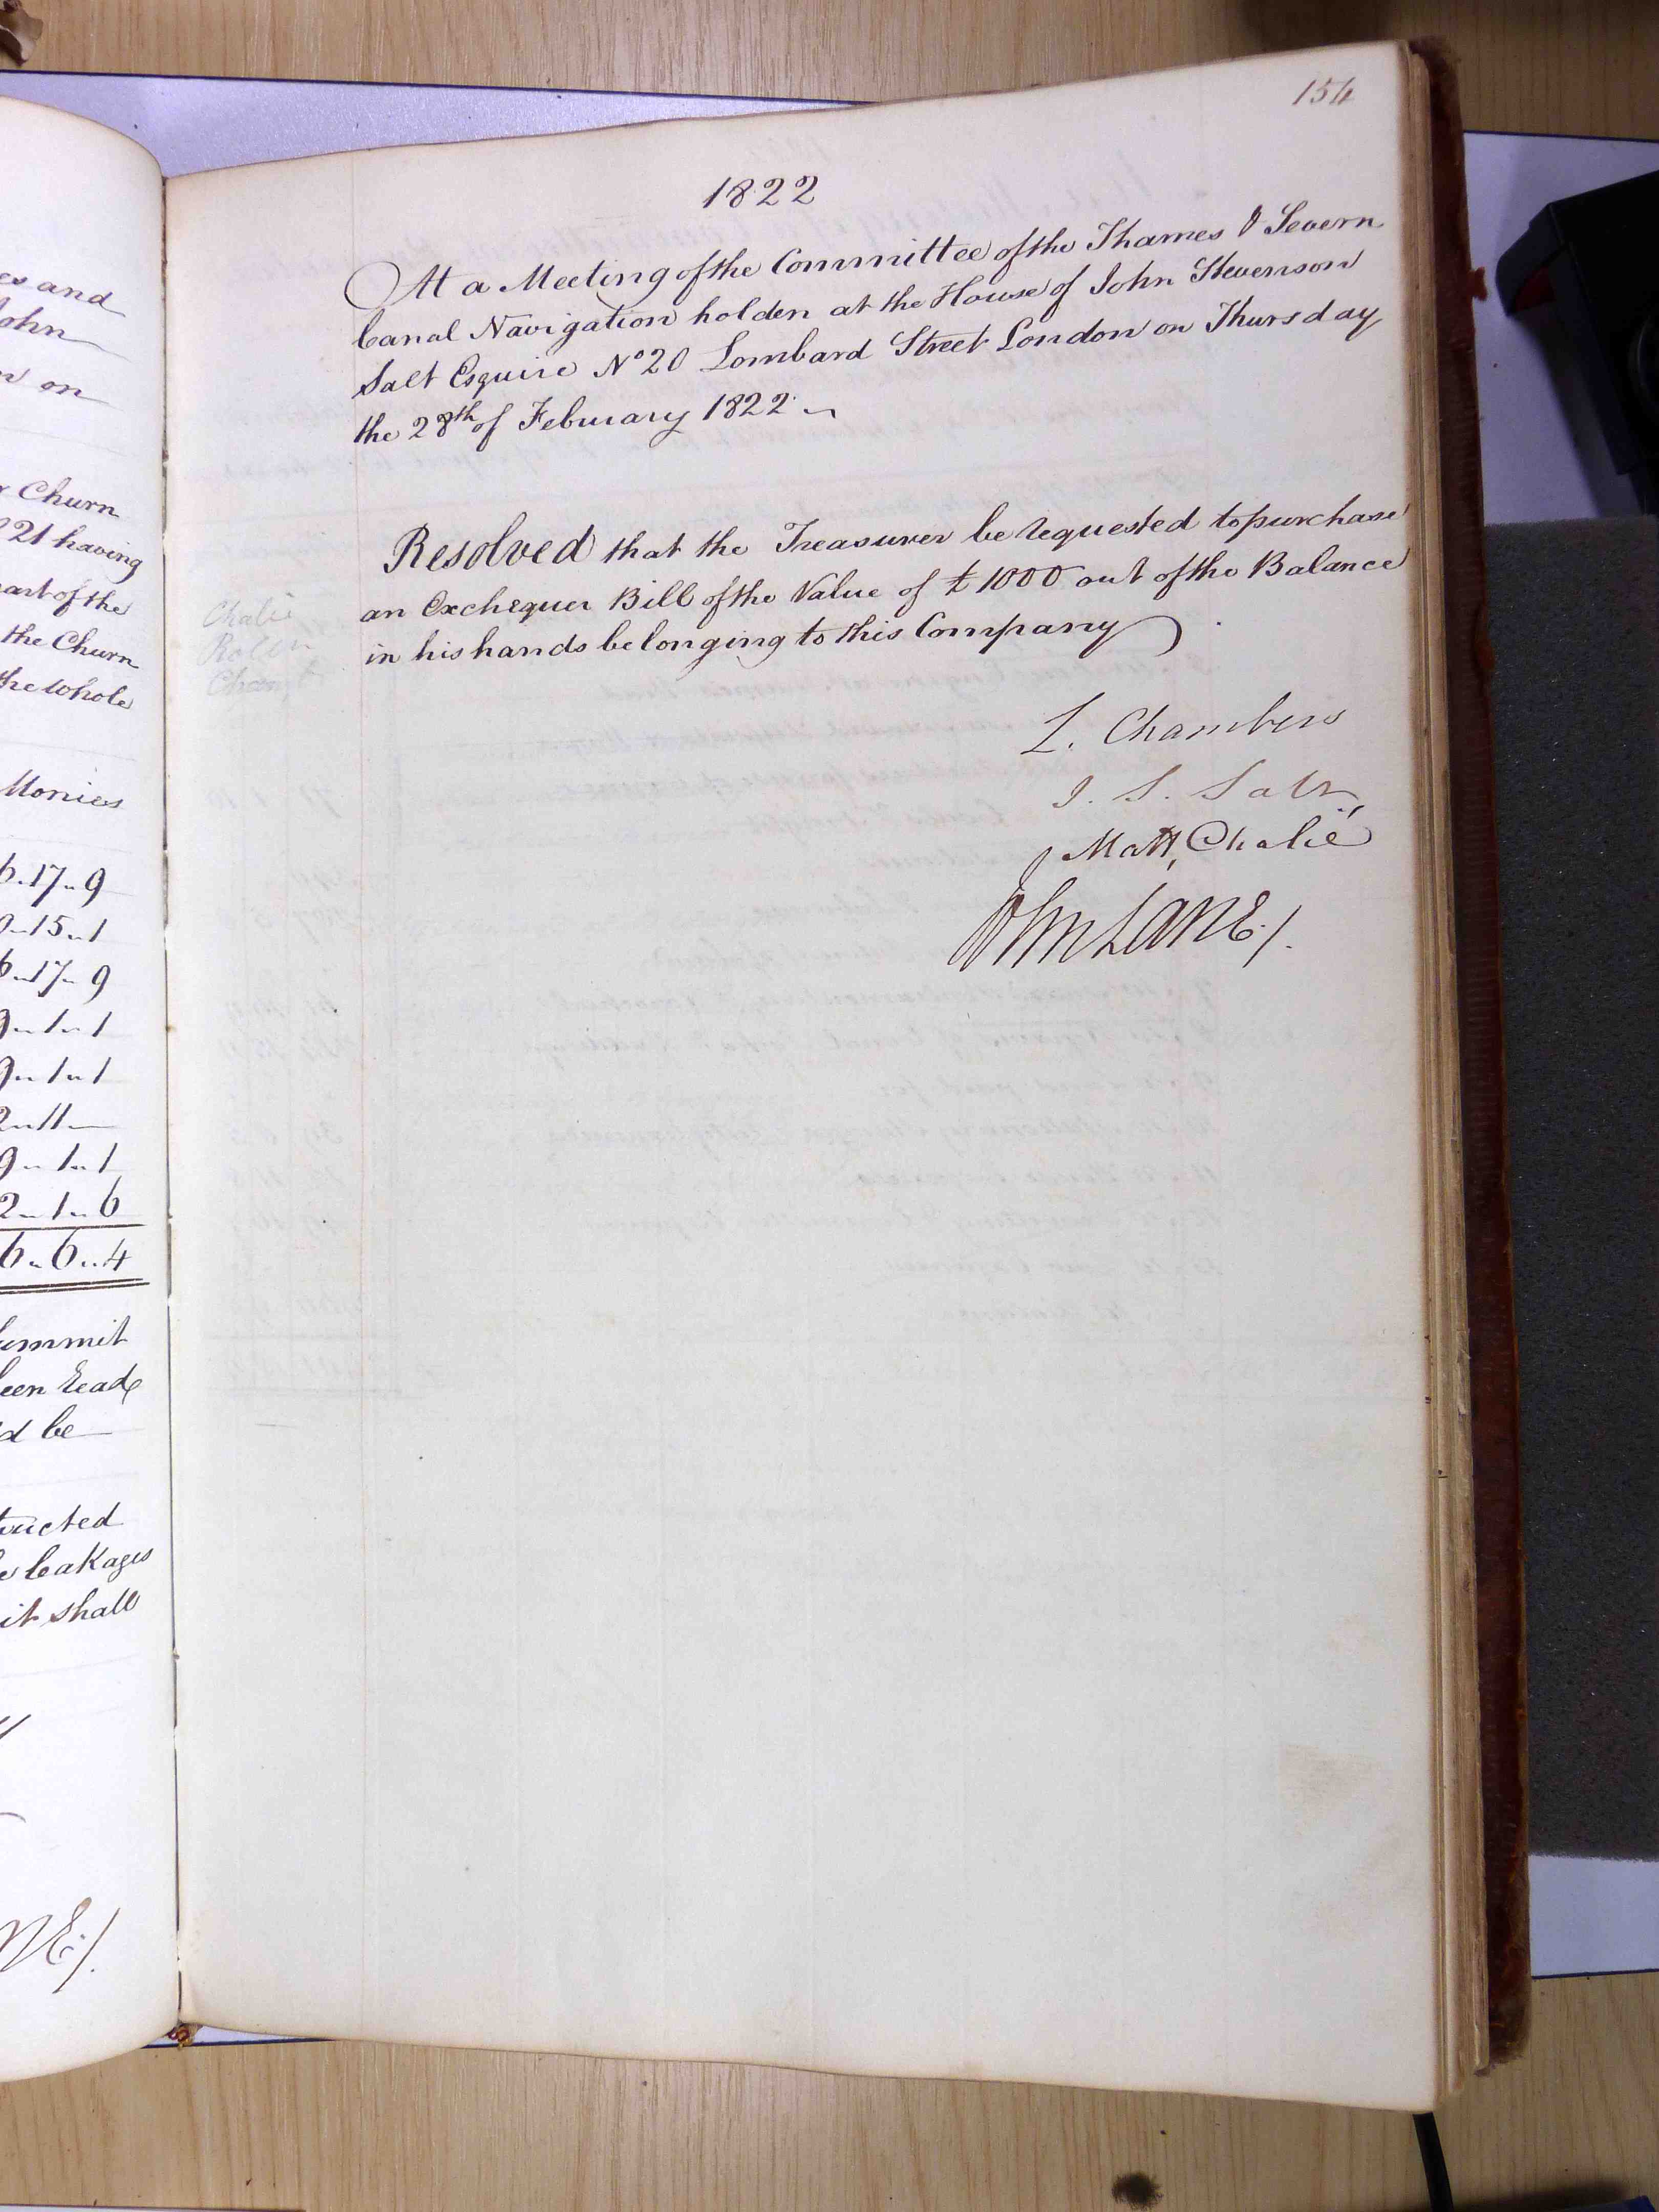 es and
John
on
Churn
21 having
part of the
the Churn
the whole
Monies
6..17..9
0..15..1
6..17..9
9..1..1
9..1..1
2..11..
9..1..1
2..1..6
6..6..4
Summit
been read
d be
tructed
leakages
it shall
NE/.
154
1822
At a Meeting of the Committee of the Thames & Severn
Canal Navigation holden at the House of John Stevenson
Salt Esquire No 20 Lombard Street London on Thursday
the 28th of February 1822
Resolved that the Treasurer be requested to purchase
an Exchequer Bill of the Value of £1000 out of the Balance
in his hands belonging to this Company
Chalie
L. Chambers
J. S. Salt
Matt, Chalié
John Lane/.